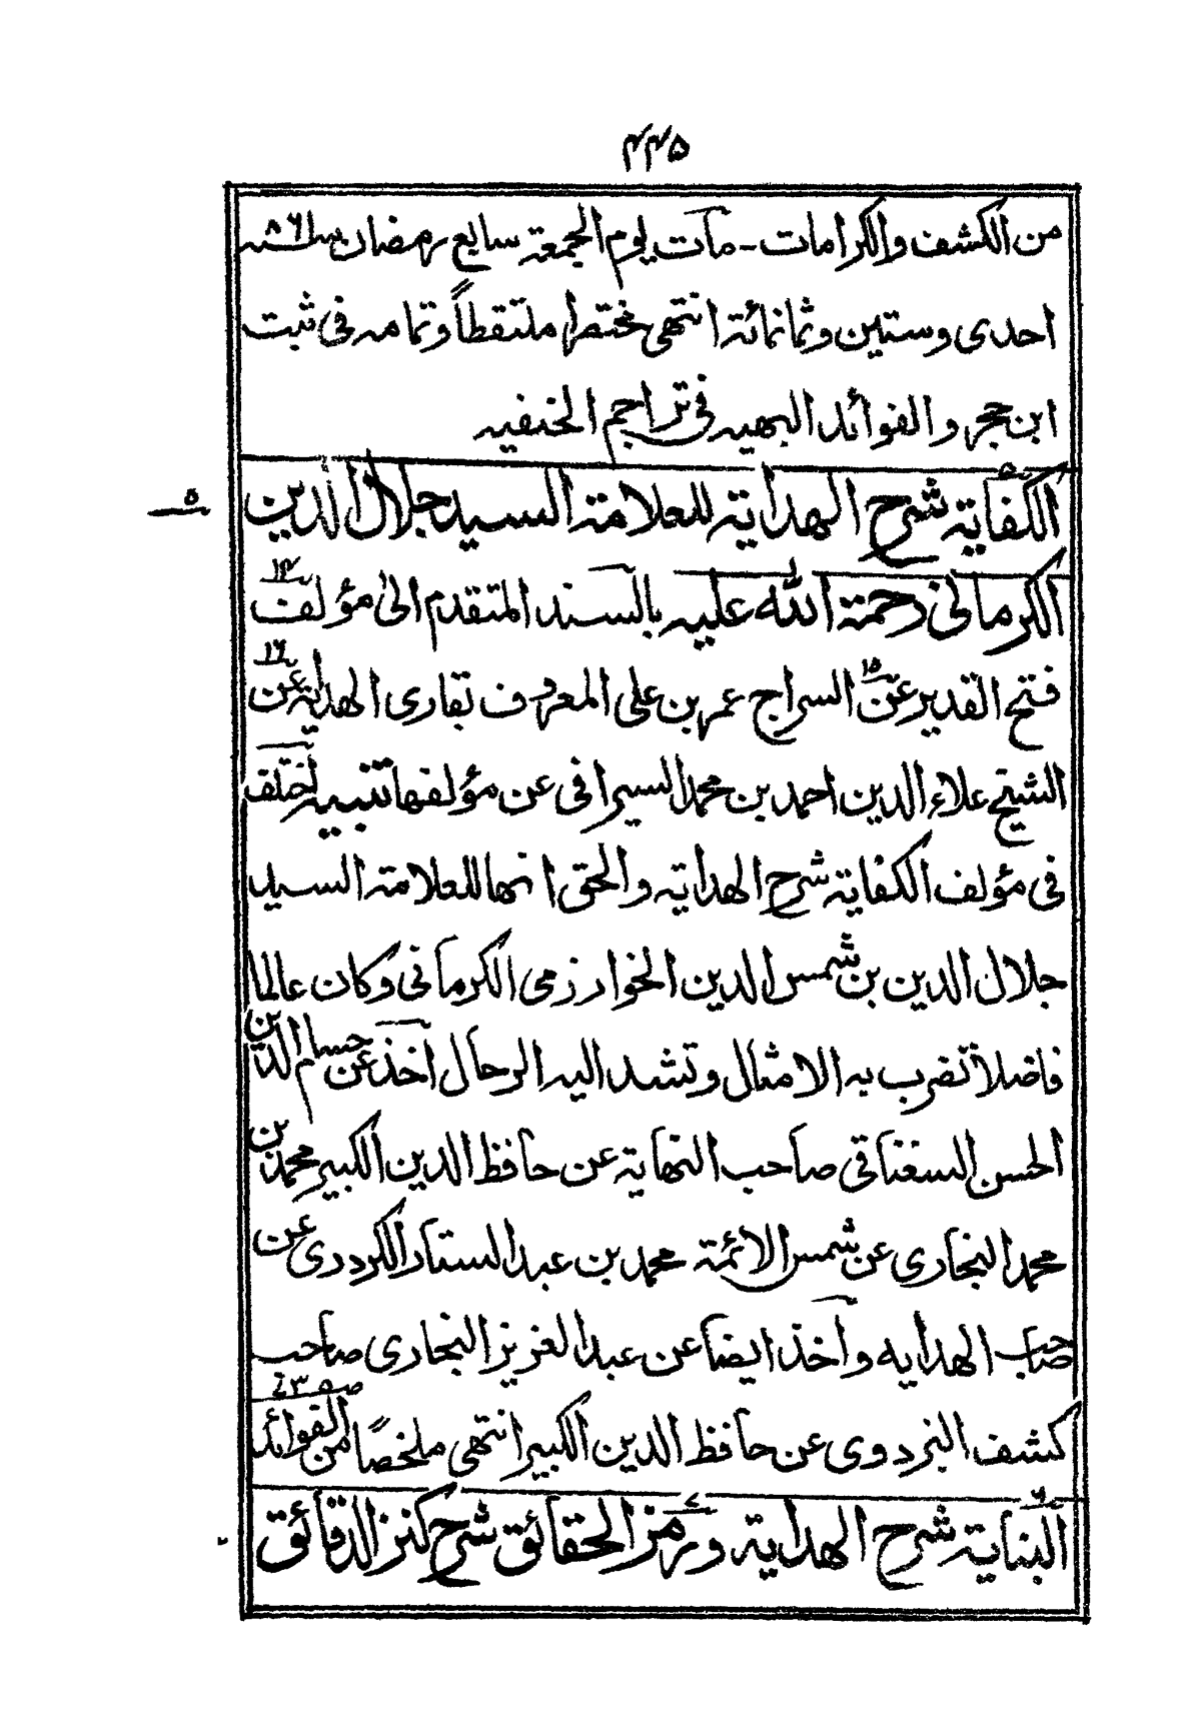 ۴۴۵
من الكشف والكرامات - مات يوم الجمعة سابع رمضان سنة ٨٦١
احدى وستين وثمانمائة انتهى مختصرا ملتقطاً وتمامه فى ثبت
ابن حجر والفوائد البهيه فى تراجم الحنفيه
٥ الكفاية شرح الهداية للعلامة السيد جلال الدين
الكرمانى رحمة الله عليه بالسند المتقدم الى مؤلف ١٤
فتح القدير عن ١٥ السراج عمر بن على المعروف بقارى الهداية عن ١٦
الشيخ علاء الدين احمد بن محمد السيرافى عن مؤلفها تنبيه اختلف
فى مؤلف الكفاية شرح الهداية والحق انها للعلامة السيد
جلال الدين بن شمس الدين الخوارزمى الكرمانى وكان عالما
فاضلاً تضرب به الامثال وتشد اليه الرحال أخذ عن حسام الدين
الحسن السغناقى صاحب النهاية عن حافظ الدين الكبير محمد بن
محمد البخارى عن شمس الائمة محمد بن عبد الستار الكردرى عن
صاحب الهدايه وأخذ ايضا عن عبد العزيز البخارى صاحب
كشف البزدوى عن حافظ الدين الكبير انتهى ملخصًا من الفوائد
٦ البناية شرح الهداية و ٧ رمز الحقائق شرح كنز الدقائق